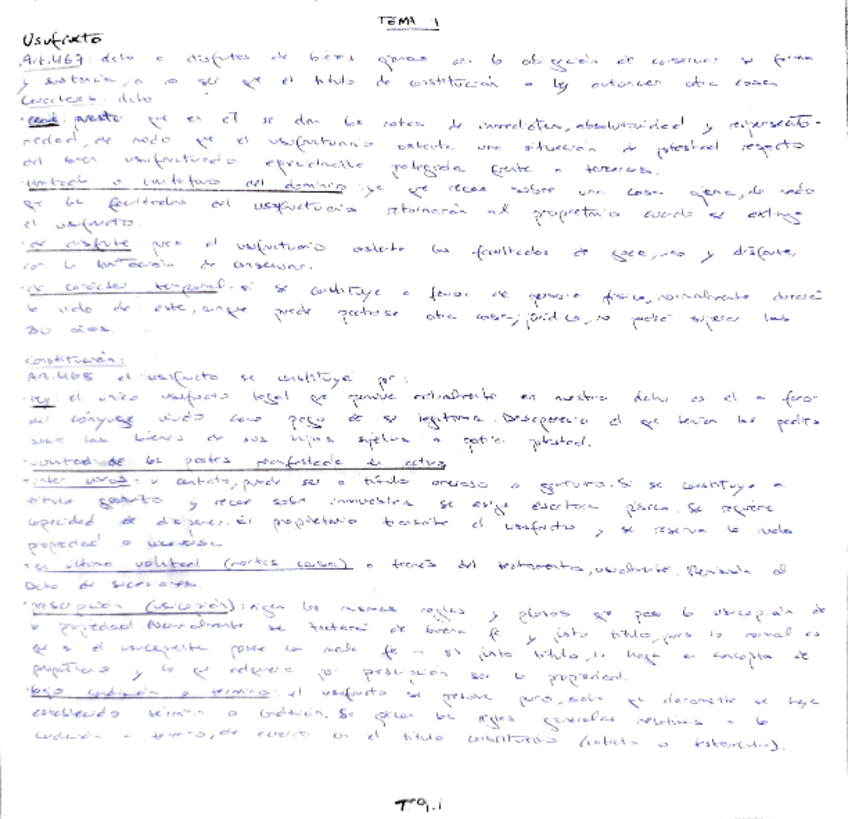 TEMA 1
Usufructo
Art.467: dcho a disfrutar de bienes ajenos con la obligación de conservar su forma
y sustancia, a no ser que el título de constitución o ley autoricen otra cosa.
Caracteres: dcho
real: puesto que en él se dan las notas de inmediatez, absolutividad y reipersecuto-
riedad, de modo que el usufructuario ostenta una situación de potestad respecto
del bien usufructuado protegida frente a terceros.
limitado o limitativo del dominio: ya que recae sobre una cosa ajena, de modo
que las facultades del usufructuario retornarán al propietario cuando se extinga
el usufructo.
de disfrute: pues el usufructuario ostenta las facultades de goce, uso y disfrute,
con la limitación de conservar.
de carácter temporal: si se constituye a favor de persona física, normalmente durará
la vida de este, aunque puede pactarse otra cosa; jurídica, no podrá superar los
30 años.
Constitución:
Art.468 el usufructo se constituye por:
ley: el único usufructo legal que pervive actualmente en nuestro dcho es el a favor
del cónyuge viudo como pago de su legítima. Desapareció el que tenían los padres
sobre los bienes de sus hijos sujetos a patria potestad.
voluntad de las partes manifestada en actos
inter vivos: o contrato, puede ser a título oneroso o gratuito. Si se constituye a
título gratuito y recae sobre inmuebles se exige escritura pública. Se requiere
capacidad de disponer. El propietario transmite el usufructo y se reserva la nuda
propiedad o
última voluntad (mortis causa) a través del testamento, usualmente. Remisión al
Dcho de sucesiones.
prescripción (usucapión): rigen las mismas reglas y plazos que para la usucapión de
la propiedad. Normalmente se tratará de buena fe y justo título, pues lo normal es
que si el usucapiente posee con mala fe o sin justo título, lo haga en concepto de
propietario y lo que adquiera por prescripción sea la propiedad.
bajo condición o término: el usufructo se presume puro, salvo que claramente se haya
establecido término o condición. Se aplican las reglas generales relativas a la
condición o término, de acuerdo con el título constitutivo (contrato o testamento).